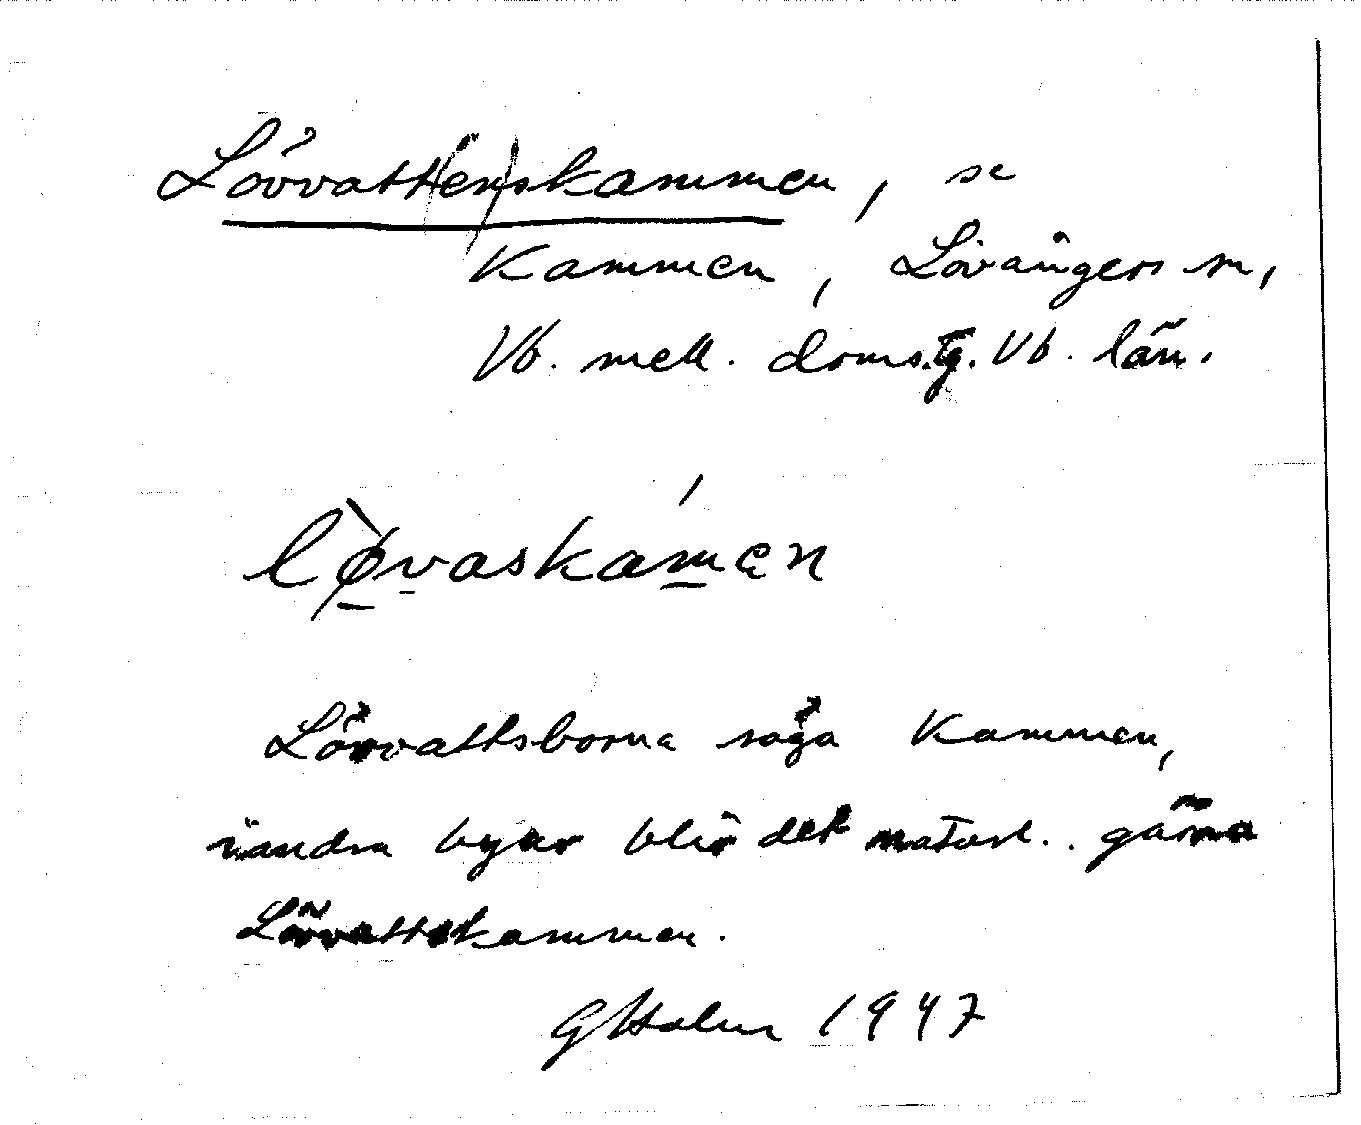 Lövvatt(en)skammen, se
Kammen, Lövångers sn,
Vb. mell. doms.tg. Vb. län.
lø̀vaskámen
Lövvattsborna säga Kammen,
i andra byar blir det naturl. gärna
Lövvattskammen.
G Holm 1947